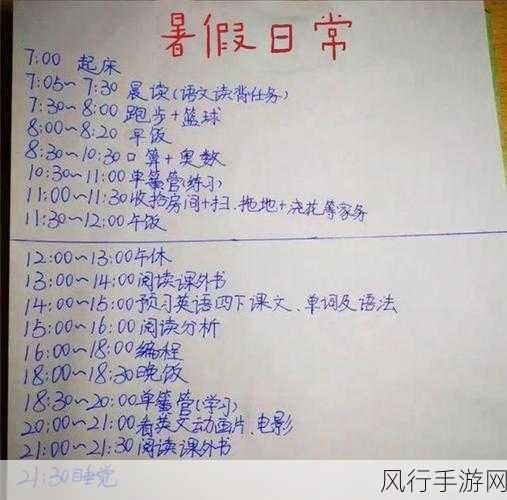 暑假日常
7:00 起床
7:05~7:30 晨读(语文读背任务)
7:30~8:00 跑步+篮球
8:00~8:20 早饭
8:30~10:30 口算+奥数
10:30~11:00 单簧管(练习)
11:00~11:30 收拾房间+扫、拖地+浇花等家务
11:30~12:00 午饭
12:00~13:00 午休
13:00~14:00 阅读课外书
14:00~15:00 预习英语四下课文、单词及语法
15:00~16:00 阅读分析
16:00~18:00 编程
18:00~18:30 晚饭
18:30~20:00 单簧管(学习)
20:00~21:00 看英文动画片、电影
21:00~21:30 阅读课外书
21:30 睡觉
风行手游网